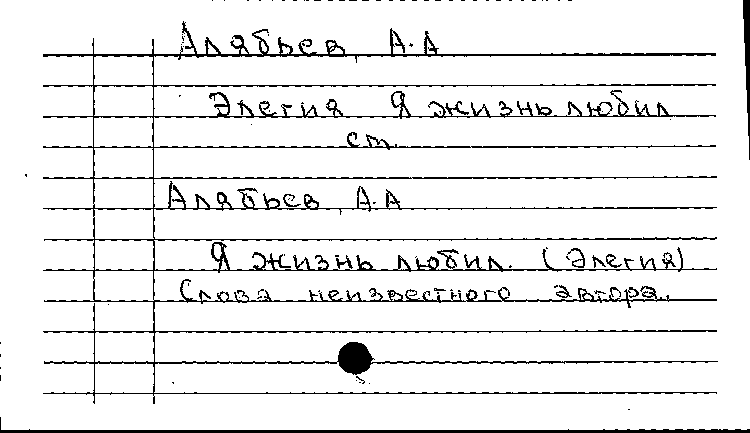 Алябьев, А.А
Элегия Я жизнь любил
ст.
Алябьев, А.А
Я жизнь любил. (Элегия)
Слова неизвестного автора.